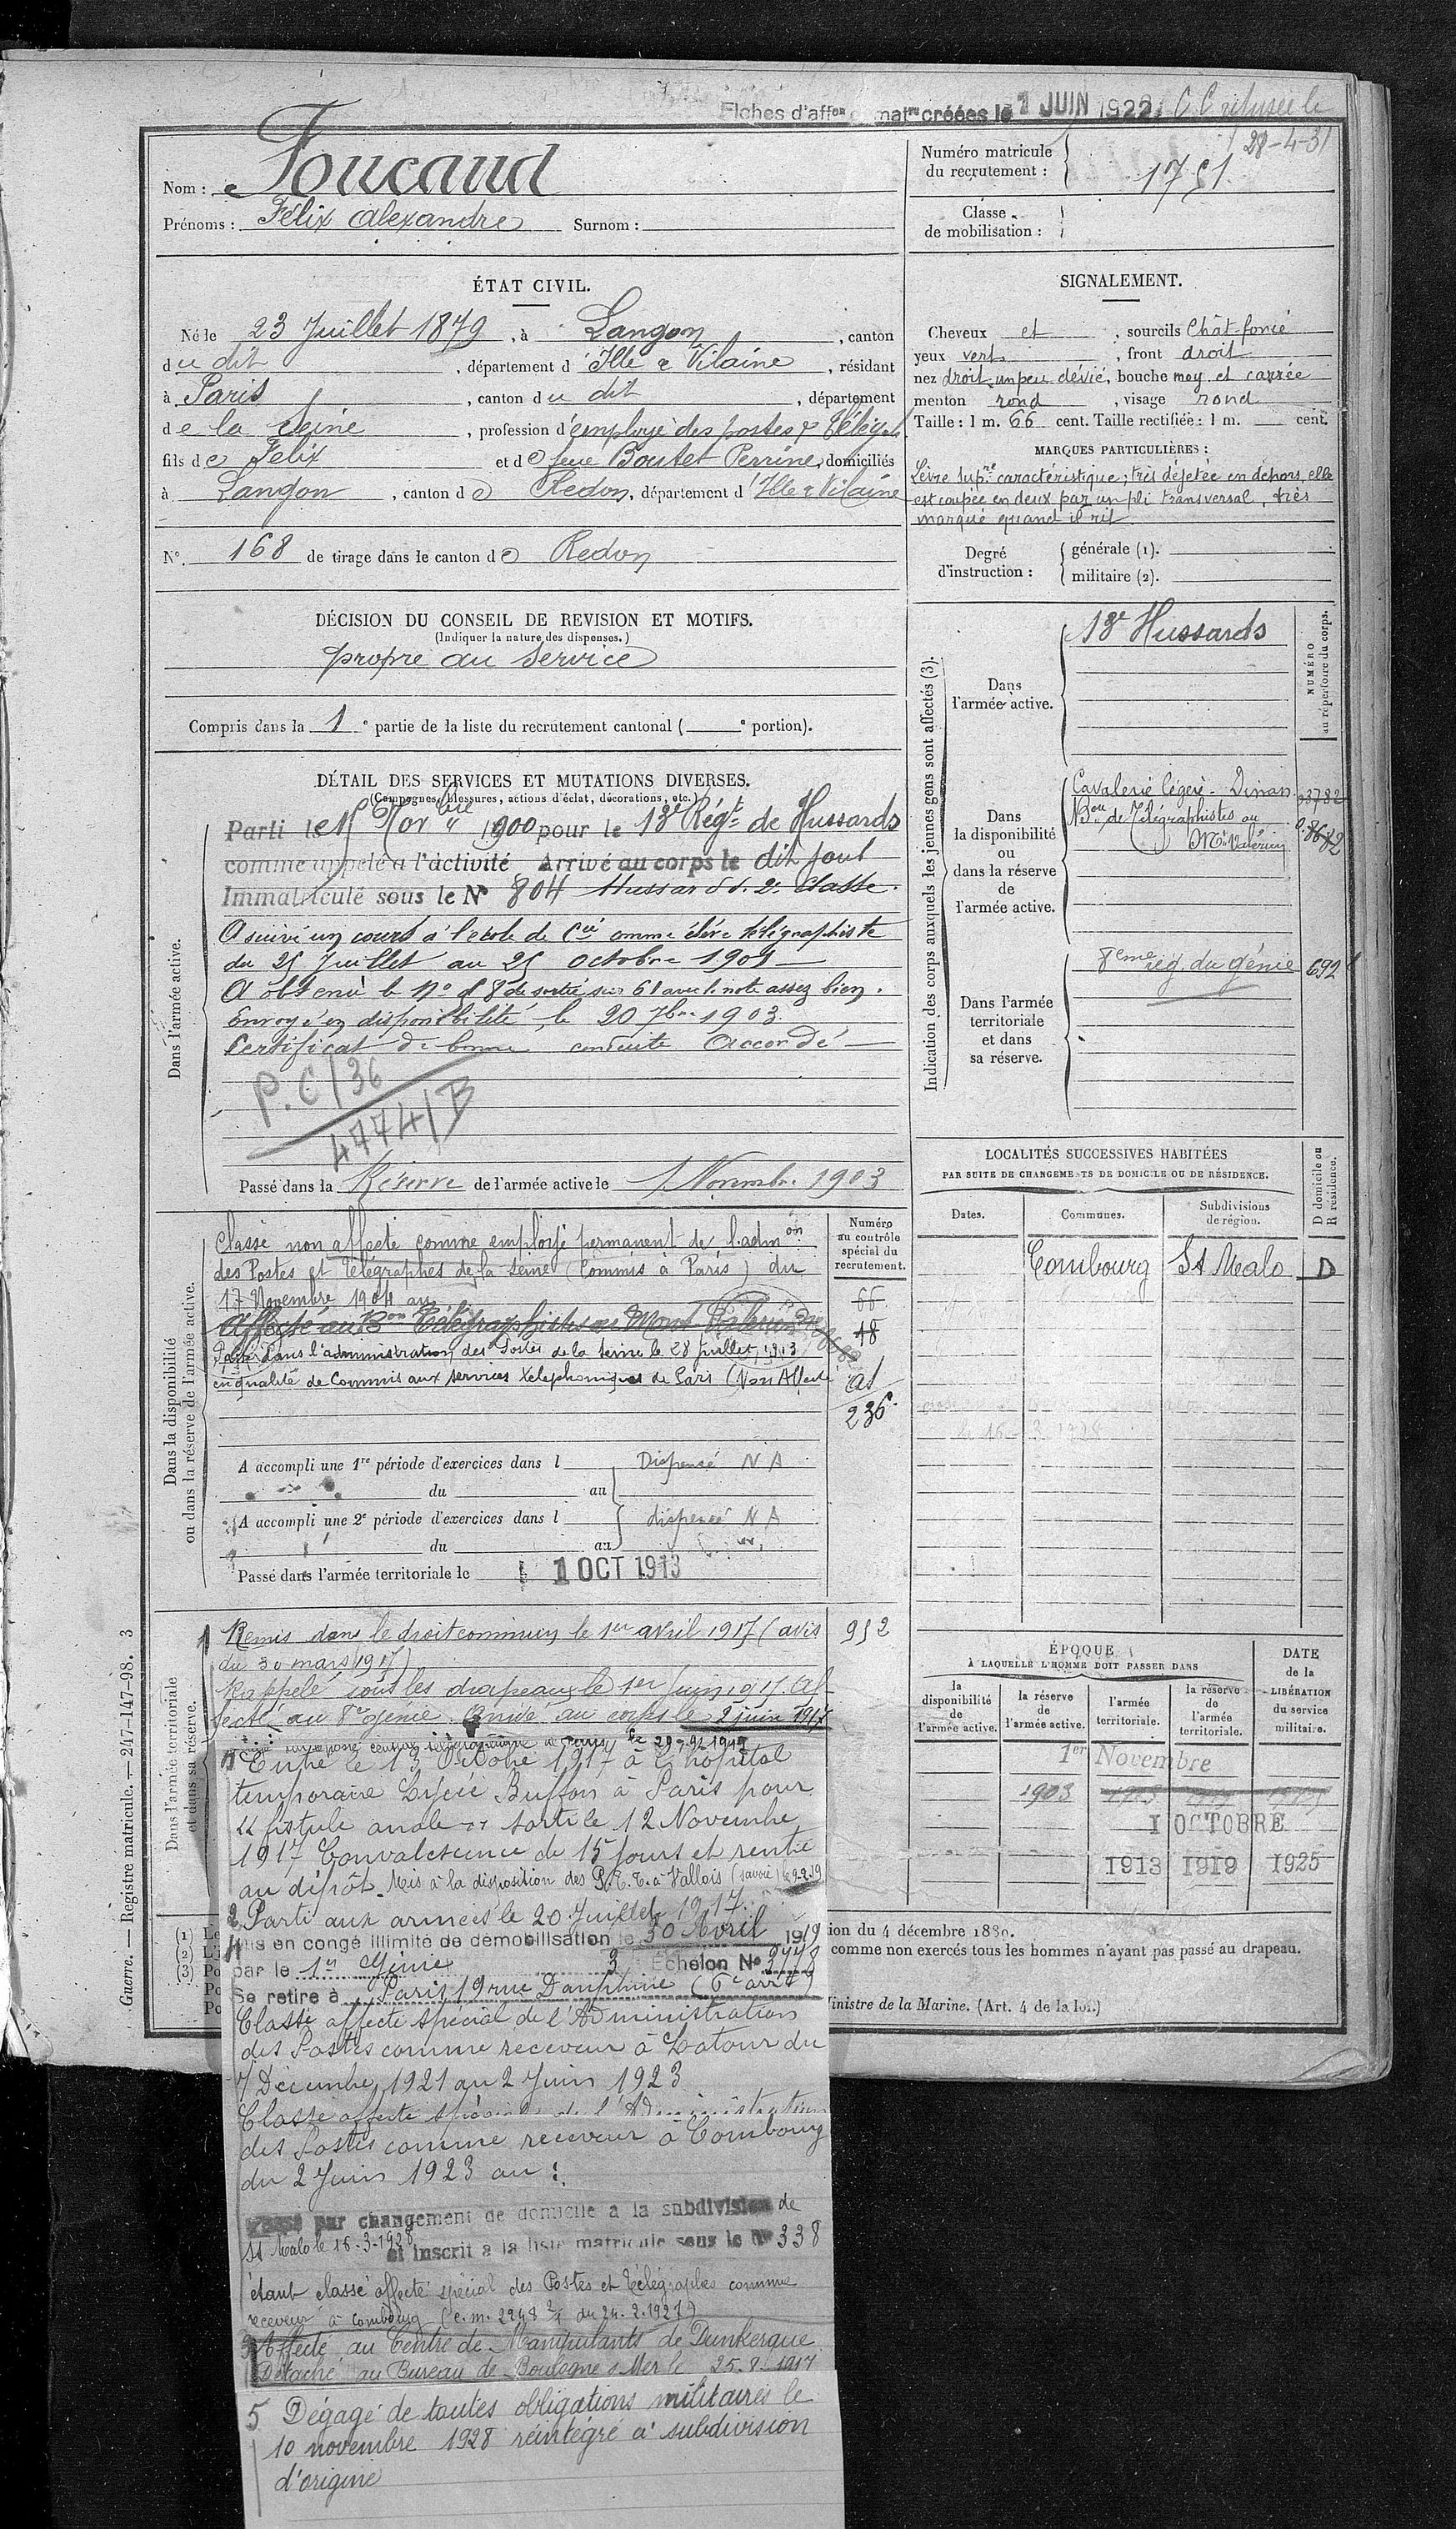 Fiches d'affon matre créées le 1 JUIN 1922
C.C. refusée le
28-4-31
Nom : Foucaud
Prénoms : Félix Alexandre Surnom :
Numéro matricule
du recrutement :
Classe
de mobilisation :
ÉTAT CIVIL.
Né le 23 Juillet 1879, à Langon, canton
du dit, département d'Ille & Vilaine, résidant
à Paris, canton du dit, département
de la Seine, profession d'employé des postes & Télégr.
fils de Félix et de feue Boutet Perrine, domiciliés
à Langon, canton de Redon, département d'Ille & Vilaine
N° 168 de tirage dans le canton de Redon
SIGNALEMENT.
Cheveux et , sourcils Chât foncé
yeux verts , front droit
nez droit un peu dévié, bouche moy. et carrée
menton rond , visage rond
Taille : 1 m. 66 cent. Taille rectifiée : 1 m. cent.
MARQUES PARTICULIÈRES :
Lèvre supre caractéristique ; très déjetée en dehors, elle
est coupée en deux par un pli transversal, très
marqué quand il rit.
Degré
d'instruction :
générale (1).
militaire (2).
DÉCISION DU CONSEIL DE REVISION ET MOTIFS.
(Indiquer la nature des dispenses.)
propre au service
Compris dans la 1e partie de la liste du recrutement cantonal ( e portion).
DÉTAIL DES SERVICES ET MUTATIONS DIVERSES.
(Campagnes, blessures, actions d'éclat, décorations, etc.)
Dans l'armée active.
Parti le 15 Novbre 1900 pour le 13e Régt de Hussards
comme appelé à l'activité Arrivé au corps le dit jour
Immatriculé sous le N° 804 Hussard de 2e classe.
A suivi un cours à l'école de Cie comme élève télégraphiste
du 25 Juillet au 25 octobre 1901
A obtenu le N° 18 de sortie sur 61 avec la note assez bien.
Envoyé en disponibilité le 20 7bre 1903
Certificat de bonne conduite Accordé
P.C/36
4774/B
Passé dans la Réserve de l'armée active le 1 Novembre 1903
Indication des corps auxquels les jeunes gens sont affectés (3).
NUMÉRO
au répertoire du corps.
Dans
l'armée active.
13e Hussards
Dans
la disponibilité
ou
dans la réserve
de
l'armée active.
Cavalerie légère - Dinan
Bon de Télégraphistes au
Mt Valérien
Dans l'armée
territoriale
et dans
sa réserve.
8eme rég. du génie
692
LOCALITÉS SUCCESSIVES HABITÉES
PAR SUITE DE CHANGEMENTS DE DOMICILE OU DE RÉSIDENCE.
Dates. Communes. Subdivisions
de région.
D domicile ou
R résidence.
Combourg St Malo D
Dans la disponibilité
ou dans la réserve de l'armée active.
Numéro
au contrôle
spécial du
recrutement.
Classé non affecté comme employé permanent de l'admon
des Postes et Télégraphes de la Seine (Commis à Paris) du
17 Novembre 1904 au
Affecté au Bon Télégraphistes au Mont Valérien
66
18
dans l'administration des Postes de la Seine le 28 juillet 1913
en qualité de Commis aux services téléphoniques de Paris (Non Affecté
236
A accompli une 1re période d'exercices dans l Dispensé N A
du au
A accompli une 2e période d'exercices dans l dispensé N A
du au
Passé dans l'armée territoriale le 1 OCT 1913
Dans l'armée territoriale
et dans sa réserve.
1 Remis dans le droit commun le 1er avril 1917 (avis
952
du 30 mars 1917)
Rappelé sous les drapeaux le 1er Juin 1917. Af-
fecté au 8e Génie. Arrivé au corps le 2 juin 1917
Entré le 13 Octobre 1917 à l'hôpital
temporaire Lycée Buffon à Paris pour
"fistule anale" sorti le 12 Novembre
1917 Convalescence de 15 jours et rentré
au dépôt. Mis à la disposition des P.T.T. à Vallois (Savoie)
2 Parti aux armées le 20 Juillet 1917
4 Mis en congé illimité de démobilisation le 30 Avril 1919
par le 1er Génie 3 Echelon N°
Se retire à Paris 19 rue Dauphine (6e arrt)
Classé affecté spécial de l'Administration
des Postes comme receveur à Latour du
7 Décembre 1921 au 2 Juin 1923
Classé affecté spécial de l'Administration
des Postes comme receveur à Combourg
du 2 Juin 1923 au :
Passé par changement de domicile à la subdivision de
St Malo le 16-3-1928 et inscrit à la liste matricule sous le n° 338
étant classé affecté spécial des Postes et Télégraphes comme
receveur à Combourg
3 Affecté au Centre de Manipulants de Dunkerque
Détaché au Bureau de Boulogne s Mer le 25.8.1917
5 Dégagé de toutes obligations militaires le
10 novembre 1928 réintégré à subdivision
d'origine
ÉPOQUE
À LAQUELLE L'HOMME DOIT PASSER DANS
la
disponibilité
de
l'armée active.
la réserve
de
l'armée active.
l'armée
territoriale.
la réserve
de
l'armée
territoriale.
DATE
de la
LIBÉRATION
du service
militaire.
1er Novembre
1903
1 OCTOBRE
1913 1919 1925
(1)
(2)
(3)
ion du 4 décembre 1889.
comme non exercés tous les hommes n'ayant pas passé au drapeau.
inistre de la Marine. (Art. 4 de la loi.)
Guerre. — Registre matricule. — 247-147-98. 3